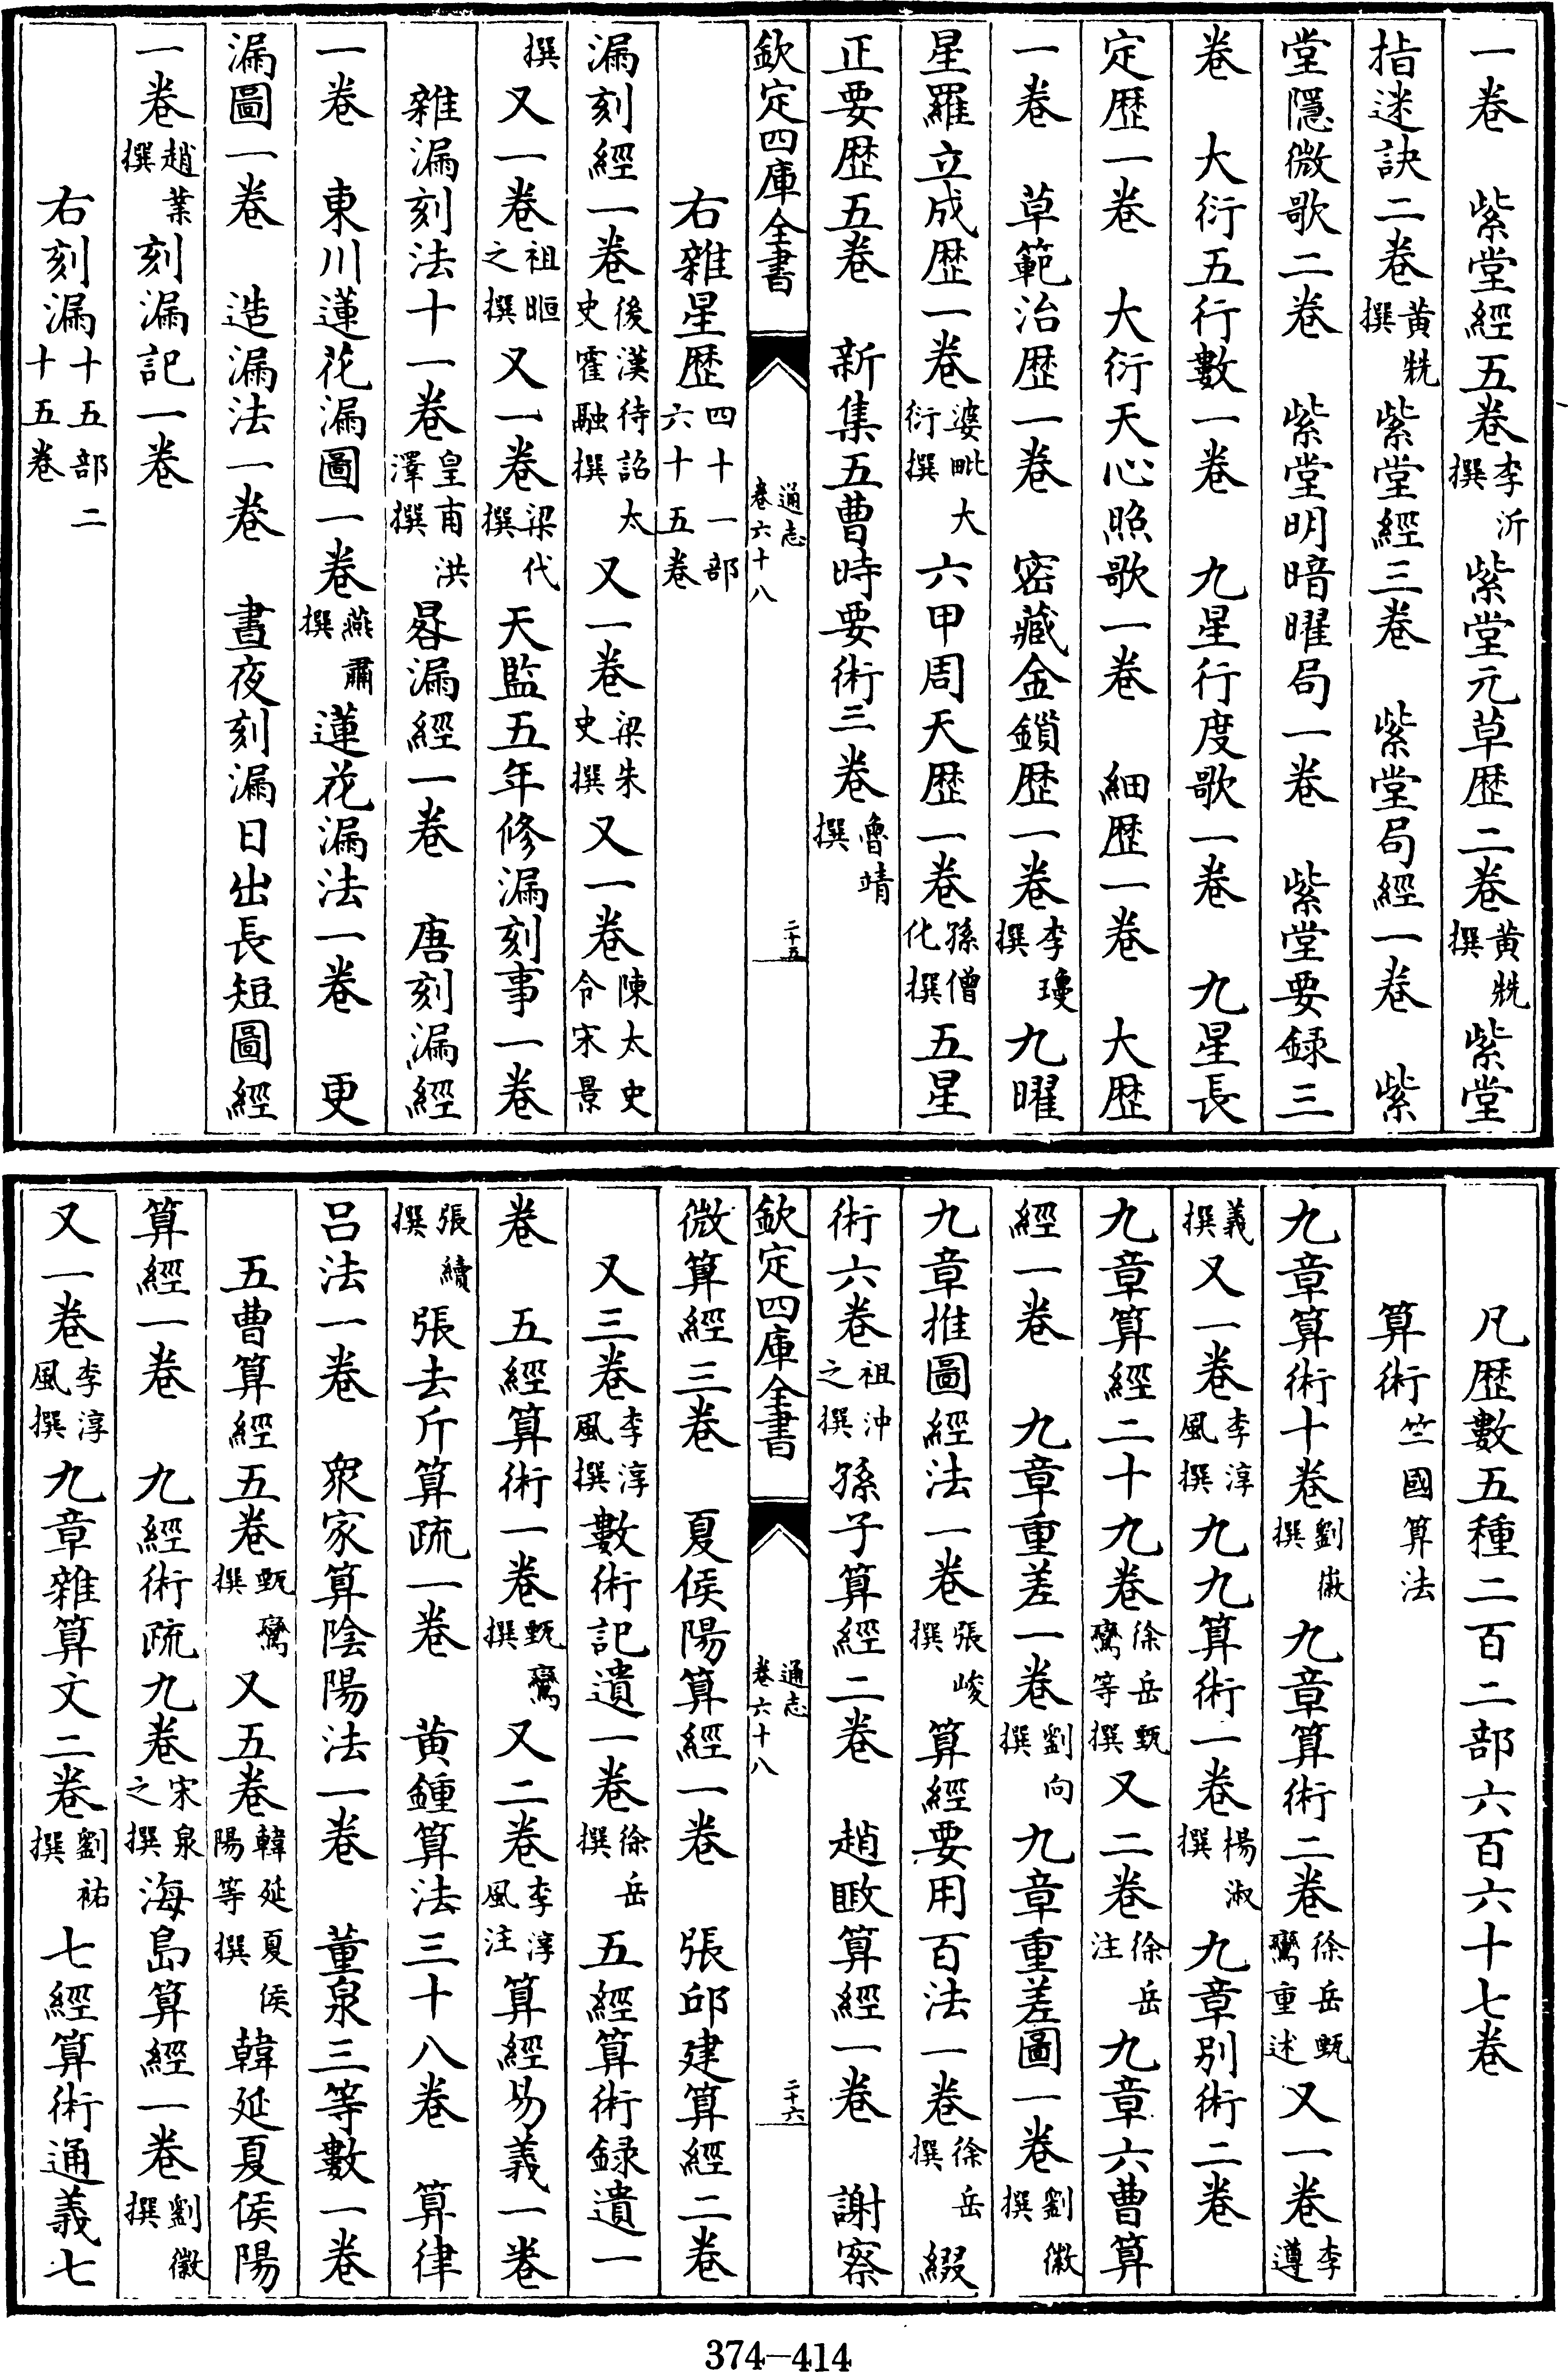 一卷　紫堂經五卷李沂撰紫堂元草歴二卷黄㲽撰紫堂
指迷訣二卷黄㲽撰紫堂經三卷　紫堂局經一卷　紫
堂隱微歌二卷　紫堂明暗曜局一卷　紫堂要録三
卷　大衍五行數一卷　九星行度歌一卷　九星長
定歴一卷　大衍天心照歌一卷　細歴一卷　大歴
一卷　草範治歴一卷　密藏金鎖歴一卷李瓊撰九曜
星羅立成歴一卷婆毗大衍撰六甲周天歴一卷孫僧化撰五星
正要歴五卷　新集五曹時要術三卷魯靖撰
欽定四庫全書　通志卷六十八　二十五
右雜星歴四十一部六十五卷
漏刻經一卷後漢待詔太史霍融撰又一卷梁朱史撰又一卷陳太史令宋景
撰又一卷祖暅之撰又一卷梁代撰天監五年修漏刻事一卷
雜漏刻法十一卷皇甫洪澤撰晷漏經一卷　唐刻漏經
一卷　東川蓮花漏圖一卷燕肅撰蓮花漏法一卷　更
漏圖一卷　造漏法一卷　晝夜刻漏日出長短圖經
一卷趙業撰刻漏記一卷
右刻漏十五部二十五卷
凡歴數五種二百二部六百六十七卷
算術竺國算法
九章算術十卷劉徽撰九章算術二卷徐岳甄鸞重述又一卷李遵
義撰又一卷李淳風撰九九算術一卷楊淑撰九章別術二卷
九章算經二十九卷徐岳甄鸞等撰又二卷徐岳注九章六曹算
經一卷　九章重差一卷劉向撰九章重差圖一卷劉徽撰
九章推圖經法一卷張峻撰算經要用百法一卷徐岳撰綴
術六卷祖沖之撰孫子算經二卷　趙㪥算經一卷　謝察
欽定四庫全書　通志卷六十八　二十六
微算經三卷　夏侯陽算經一卷　張邱建算經二卷
又三卷李淳風撰數術記遺一卷徐岳撰五經算術録遺一
卷　五經算術一卷甄鸞撰又二卷李淳風注算經易義一卷
張續撰張去斤算疏一卷　黄鍾算法三十八卷　算律
吕法一卷　衆家算陰陽法一卷　董泉三等數一卷
五曹算經五卷甄鸞撰又五卷韓延夏侯陽等撰韓延夏侯陽
算經一卷　九經術疏九卷宋泉之撰海島算經一卷劉徽撰
又一卷李淳風撰九章雜算文二卷劉祐撰七經算術通義七
374—414